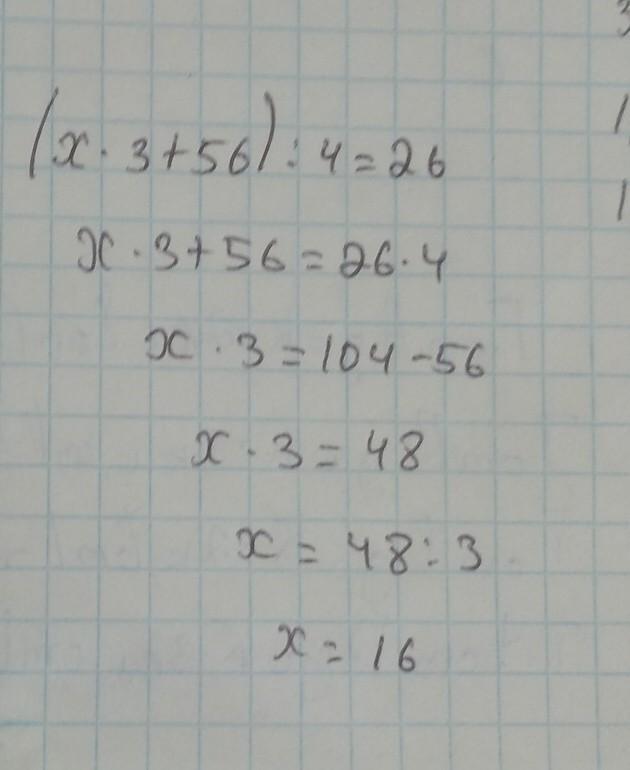 (x · 3 + 56) : 4 = 26
x · 3 + 56 = 26 · 4
x · 3 = 104 - 56
x · 3 = 48
x = 48 : 3
x = 16